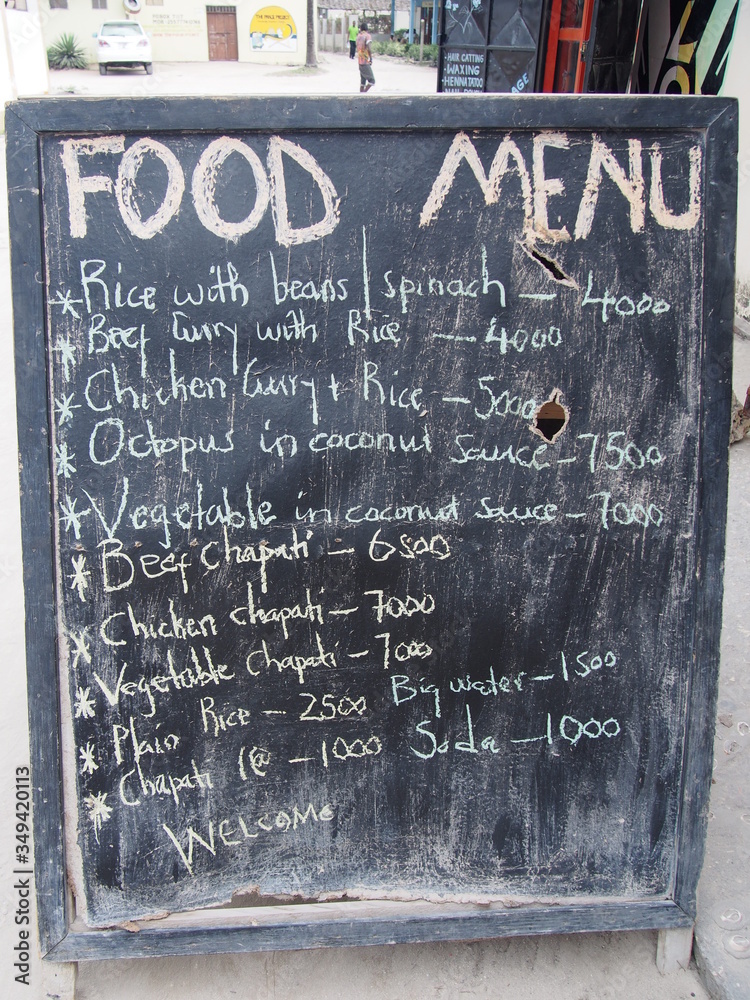 HAIR CATTING
WAXING
HENNA TATOO
FOOD MENU
* Rice with beans | spinach — 4000
* Beef Curry with Rice — 4000
* Chicken Curry + Rice — 5000
* Octopus in coconut sauce — 7500
* Vegetable in coconut sauce — 7000
* Beef Chapati — 6500
* Chicken chapati — 7000
* Vegetable chapati — 7000
Big water — 1500
* Plain Rice — 2500
Soda — 1000
* Chapati 1@ — 1000
WELCOME
Adobe Stock | #349420113